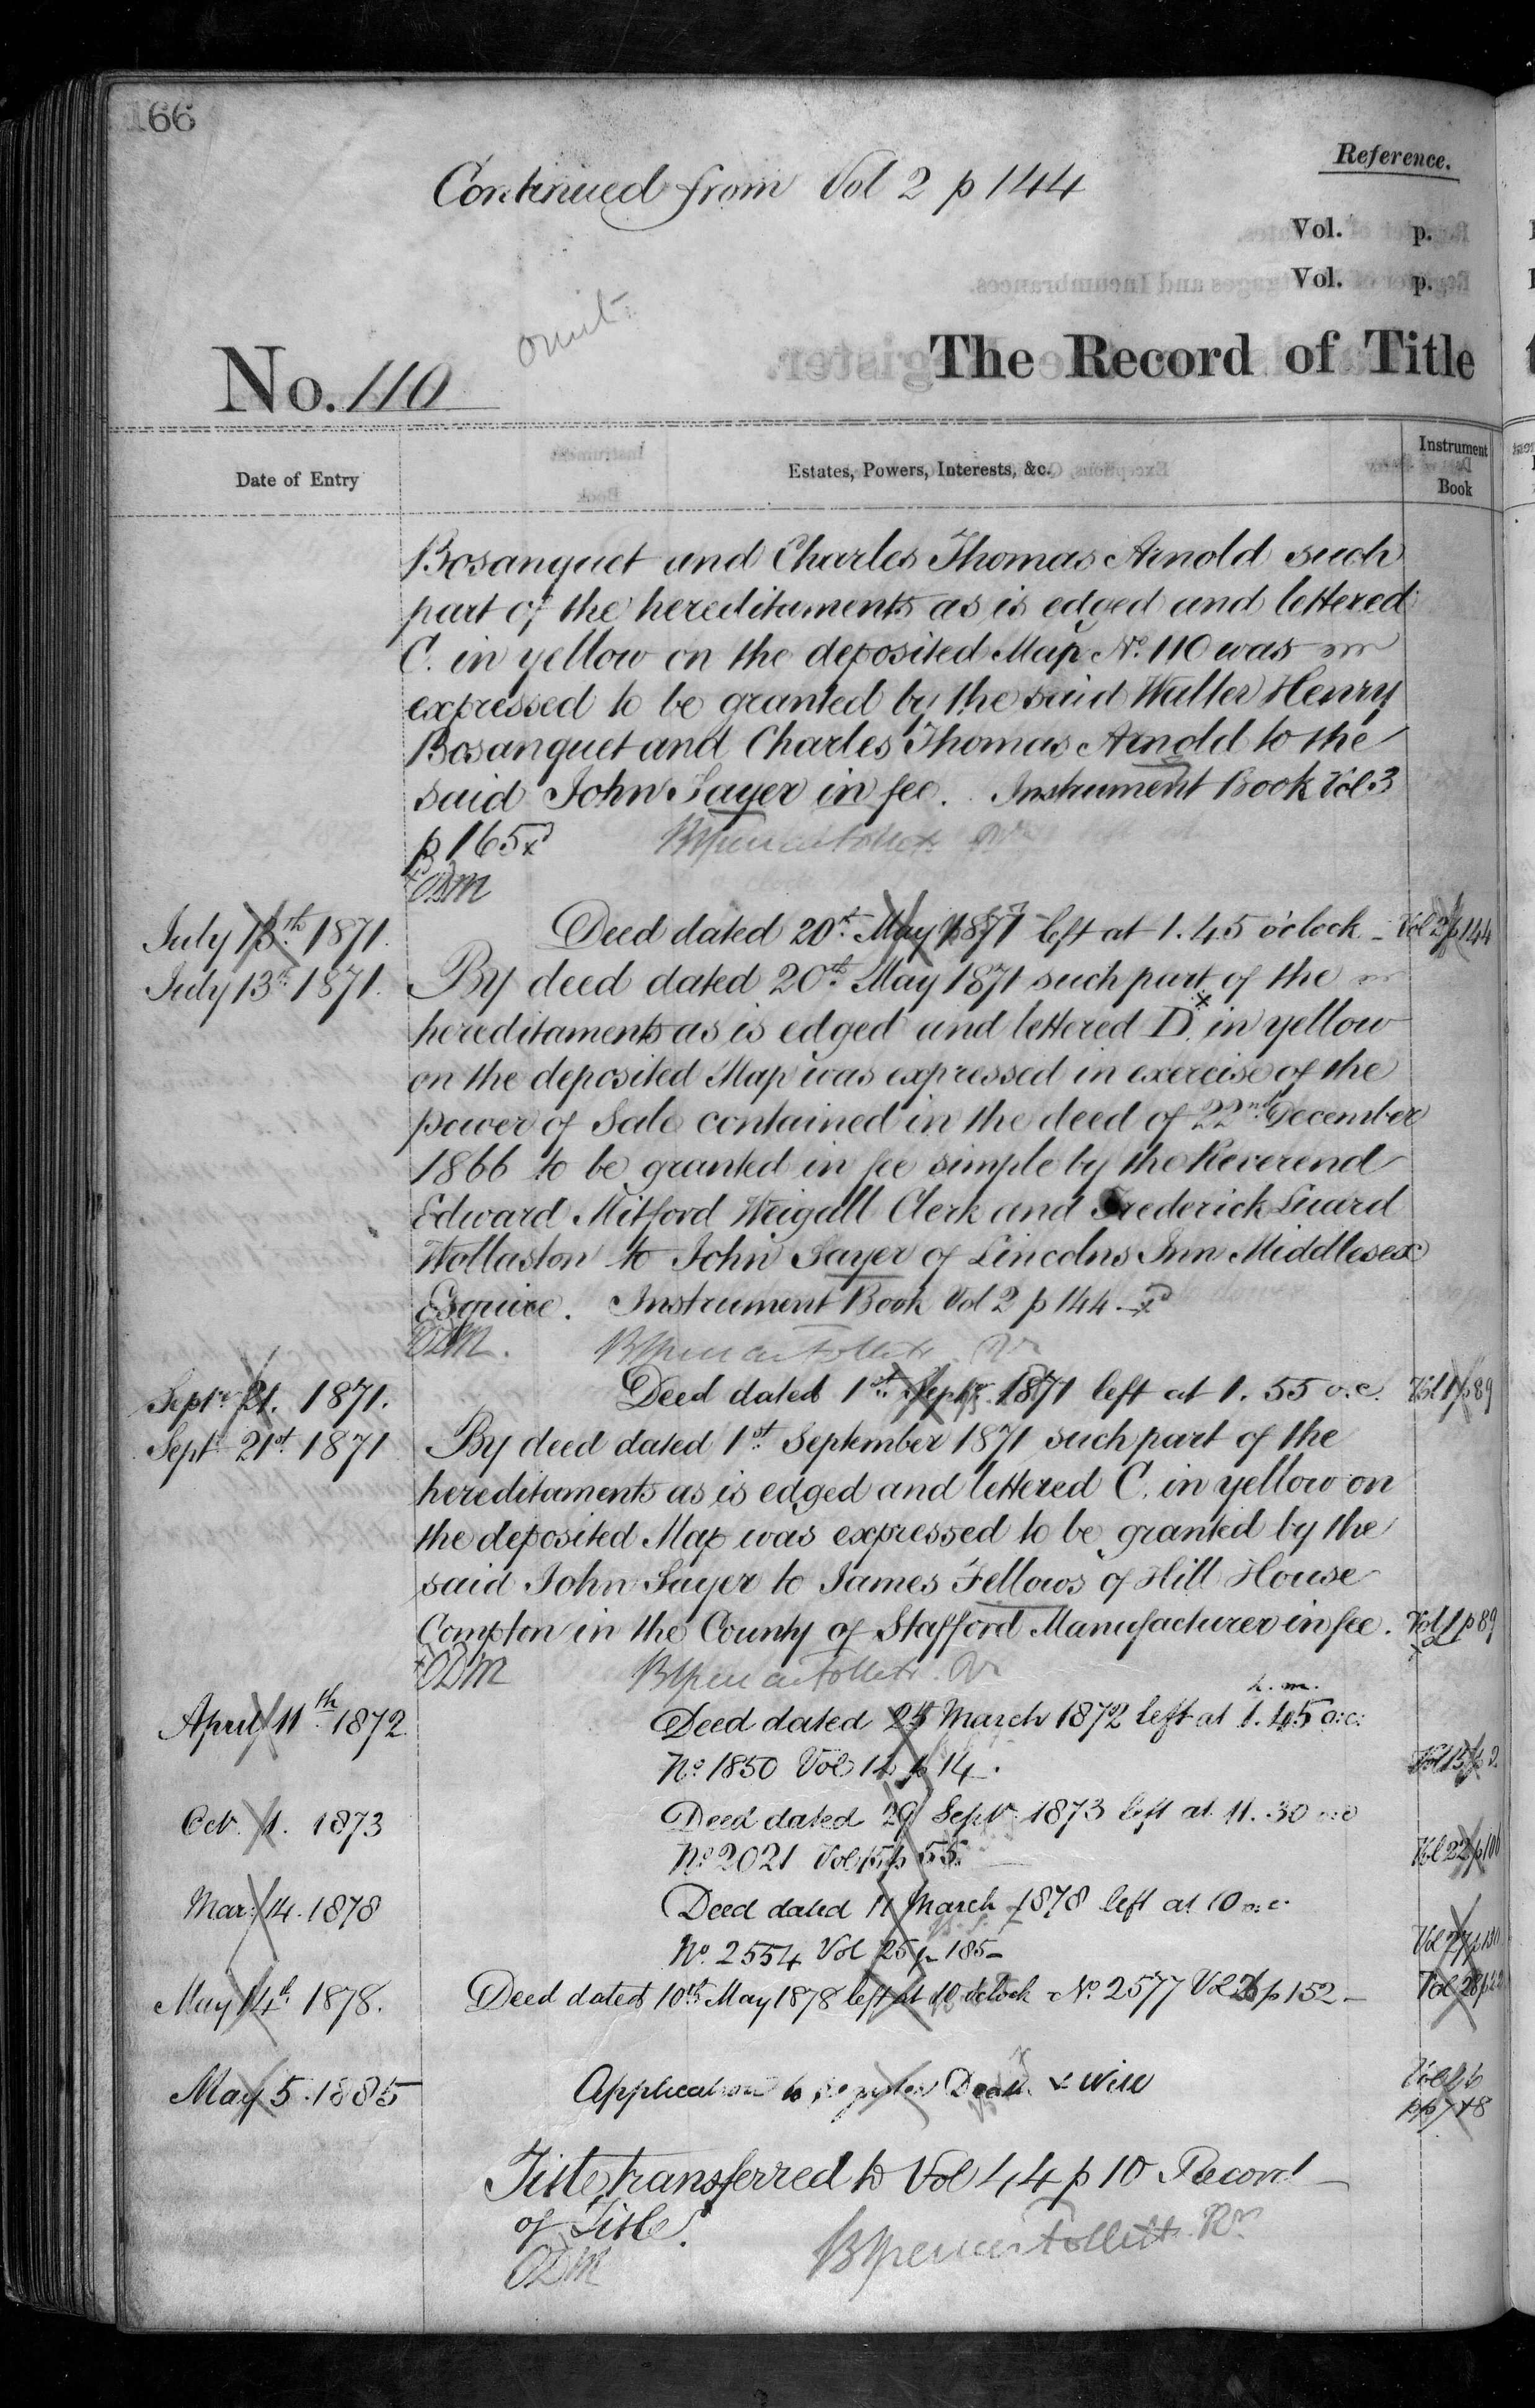 166
Reference.
Continued from Vol 2 p 144
Vol. p.
Vol. p.
omit
No. 110
The Record of Title
Date of Entry
Estates, Powers, Interests, &c.
Instrument Book
Bosanquet and Charles Thomas Arnold such
part of the hereditaments as is edged and lettered
C. in yellow on the deposited Map No. 110 was
expressed to be granted by the said Walter Henry
Bosanquet and Charles Thomas Arnold to the
said John Sayer in fee. Instrument Book Vol 3
p 165
BSpencer Follett Rr
ODM
July 13th 1871. Deed dated 20th May 1871 left at 1.45 o'clock - Vol 2 p 144
July 13th 1871. By deed dated 20th May 1871 such part of the
hereditaments as is edged and lettered D. in yellow
on the deposited Map was expressed in exercise of the
power of Sale contained in the deed of 22nd December
1866 to be granted in fee simple by the Reverend
Edward Mitford Weigall Clerk and Frederick Luard
Wollaston to John Sayer of Lincolns Inn Middlesex
Esquire. Instrument Book Vol 2 p 144
ODM. BSpencer Follett Rr
Septr 21. 1871. Deed dated 1st Septr 1871 left at 1.55 o.c. Vol 1 p 89
Septr 21st 1871 By deed dated 1st September 1871 such part of the
hereditaments as is edged and lettered C. in yellow on
the deposited Map was expressed to be granted by the
said John Sayer to James Fellows of Hill House
Compton in the County of Stafford Manufacturer in fee. Vol 1 p 89
ODM BSpencer Follett Rr
h. m.
April 11th 1872 Deed dated 25 March 1872 left at 1.45 o.c.
No 1850 Vol 12 p 14. Vol 15 p 2
Oct. 1. 1873 Deed dated 29 Septr 1873 left at 11.30 o.c
No 2021 Vol 15 p 55. Vol 22 p
Mar: 14. 1878 Deed dated 11 March 1878 left at 10 o.c.
No. 2554 Vol 25 p 185- Vol 27 p
May 14th 1878. Deed dated 10th May 1878 left at 10 o'clock No. 2577 Vol p 152 - Vol 28 p
May 5. 1885 Application to register Death & Will
pp 7 & 8
Title transferred to Vol 44 p 10 Record
of Title.
ODM BSpencer Follett Rr